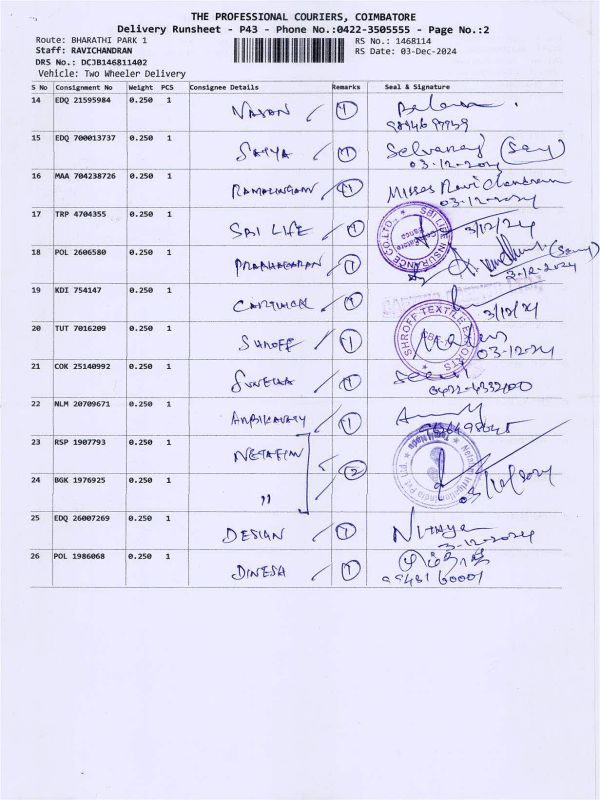 THE PROFESSIONAL COURIERS, COIMBATORE
Delivery Runsheet - P43 - Phone No.:0422-3505555 - Page No.:2
Route: BHARATHI PARK 1
RS No.: 1468114
Staff: RAVICHANDRAN
RS Date: 03-Dec-2024
DRS No.: DCJB146811402
Vehicle: Two Wheeler Delivery
S No Consignment No Weight PCS Consignee Details Remarks Seal & Signature
14 EDQ 21595984 0.250 1 1
15 EDQ 700013737 0.250 1 SATYA 1 Selvaraj
03-12-2024
16 MAA 704238726 0.250 1 RAMALINGAM 1 Misses Ravi Chandran
03-12-2024
17 TRP 4704355 0.250 1 SBI LIFE 1 SBI LIFE INSURANCE CO.LTD. 3/12/24
18 POL 2606580 0.250 1 1
3-12-2024
19 KDI 754147 0.250 1 1 3/12/24
20 TUT 7016209 0.250 1 SHROFF 1 SHROFF TEXTILE EXPORTS
03-12-24
21 COK 25140992 0.250 1 1
0422-4332400
22 NLM 20709671 0.250 1 1
23 RSP 1907793 0.250 1 NETAFIM 2
24 BGK 1976925 0.250 1 "
25 EDQ 26007269 0.250 1 DESIGN 1 Nithya
3-12-2024
26 POL 1986068 0.250 1 DINESH 1
99431 60001